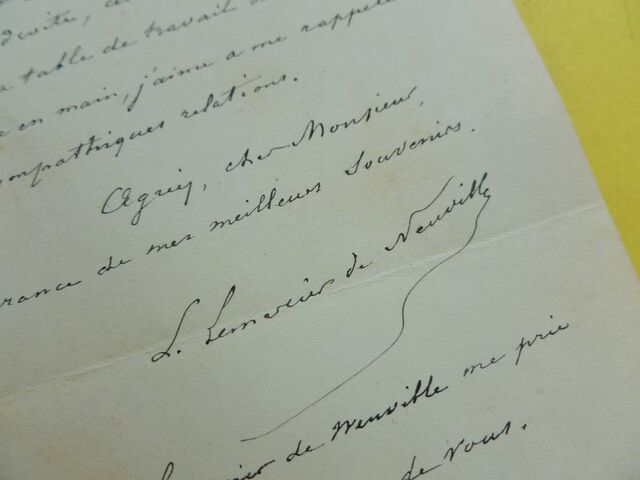 droite,
table de travail
en main, j'aime a me rappele
sympathiques relations.
Agréez, cher Monsieur,
rance de mes meilleurs souvenirs.
L. Lemercier de Neuville
de Neuville me prie
de vous.